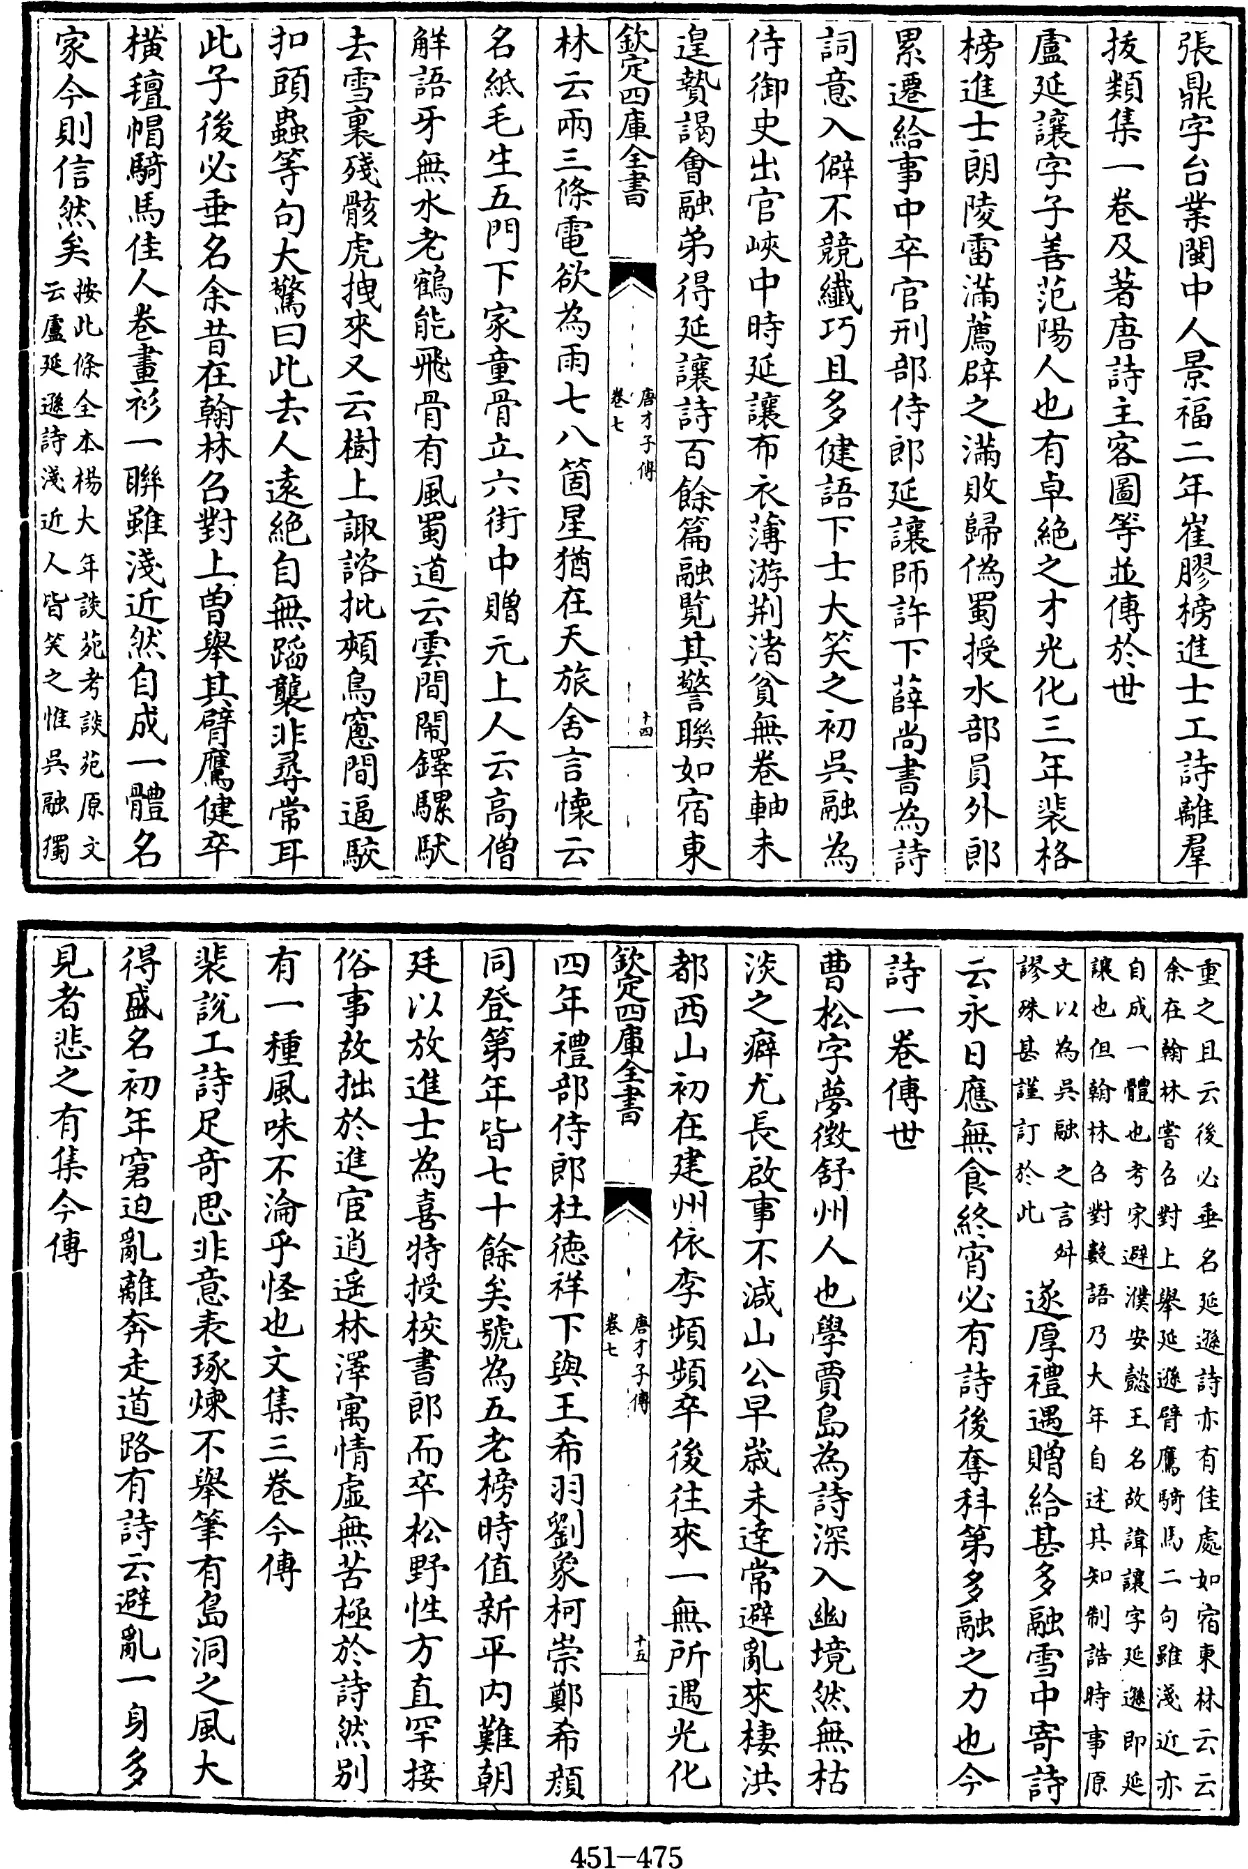 張鼎字台業閩中人景福二年崔膠榜進士工詩離羣
拔類集一卷及著唐詩主客圖等並傳於世
盧延讓字子善范陽人也有卓絶之才光化三年裴格
榜進士朗陵雷滿薦辟之滿敗歸偽蜀授水部員外郎
累遷給事中卒官刑部侍郎延讓師許下薛尚書為詩
詞意入僻不競纖巧且多健語下士大笑之初吳融為
侍御史出官峽中時延讓布衣薄游荆渚貧無卷軸未
遑贄謁會融弟得延讓詩百餘篇融覧其警聯如宿東
欽定四庫全書
唐才子傳
卷七
十四
林云兩三條電欲為雨七八箇星猶在天旅舍言懷云
名紙毛生五門下家童骨立六街中贈元上人云高僧
解語牙無水老鶴能飛骨有風蜀道云雲間閙鐸騾馱
去雪裏殘骸虎拽來又云樹上諏諮批頰鳥窻間逼駮
扣頭蟲等句大驚曰此去人遠絶自無蹈襲非尋常耳
此子後必垂名余昔在翰林召對上曽舉其臂鷹健卒
橫氊帽騎馬佳人卷畫衫一聯雖淺近然自成一體名
家今則信然矣
按此條全本楊大年談苑考談苑原文
云盧延遜詩淺近人皆笑之惟吳融獨
重之且云後必垂名延遜詩亦有佳處如宿東林云云
余在翰林嘗召對上舉延遜臂鷹騎馬二句雖淺近亦
自成一體也考宋避濮安懿王名故諱讓字延遜即延
讓也但翰林召對數語乃大年自述其知制誥時事原
文以為吳融之言舛
謬殊甚謹訂於此
遂厚禮遇贈給甚多融雪中寄詩
云永日應無食終宵必有詩後奪科第多融之力也今
詩一卷傳世
曹松字夢徵舒州人也學賈島為詩深入幽境然無枯
淡之癖尤長啟事不減山公早歲未達常避亂來棲洪
都西山初在建州依李頻頻卒後往來一無所遇光化
欽定四庫全書
唐才子傳
卷七
十五
四年禮部侍郎杜德祥下與王希羽劉象柯崇鄭希顔
同登第年皆七十餘矣號為五老榜時值新平内難朝
廷以放進士為喜特授校書郎而卒松野性方直罕接
俗事故拙於進宦逍遥林澤寓情虛無苦極於詩然别
有一種風味不淪乎怪也文集三卷今傳
裴說工詩足奇思非意表琢煉不舉筆有島洞之風大
得盛名初年窘迫亂離奔走道路有詩云避亂一身多
見者悲之有集今傳
451-475